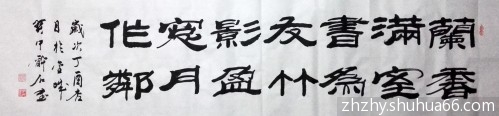 蘭香
滿室
書爲
友竹
影盈
窓月
作鄰
歲次丁酉春
月於金城
zhzhyshuhua66.com